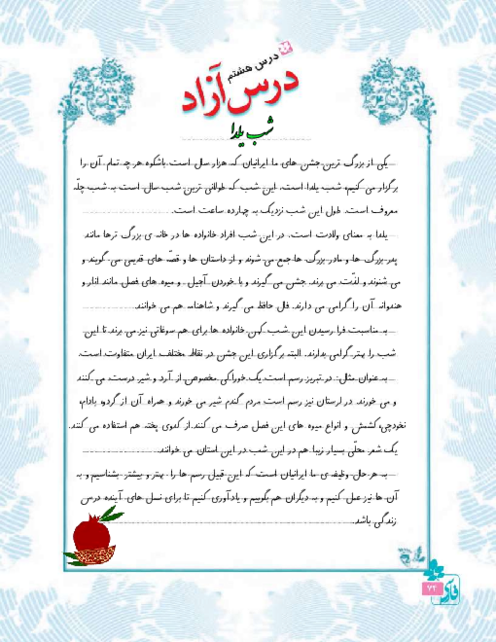 درس هشتم
درس آزاد
شب یلدا
یکی از بزرگ ترین جشن های ما ایرانیان که هزار سال است باشکوه هر چه تمام آن را
برگزار می کنیم، شب یلدا است. این شب که طولانی ترین شب سال است به شب چلّه
معروف است. طول این شب نزدیک به چهارده ساعت است.
یلدا به معنای ولادت است. در این شب افراد خانواده ها در خانه ی بزرگ ترها مانند
پدر بزرگ ها و مادر بزرگ ها جمع می شوند و از داستان ها و قصّه های قدیمی می گویند و
می شنوند و لذّت می برند. جشن می گیرند و با خوردن آجیل و میوه های فصل مانند انار و
هندوانه آن را گرامی می دارند. فال حافظ می گیرند و شاهنامه هم می خوانند.
به مناسبت فرا رسیدن این شب کهن خانواده ها برای هم سوغاتی نیز می برند تا این
شب را بهتر گرامی بدارند. البته برگزاری این جشن در نقاط مختلف ایران متفاوت است.
به عنوان مثال: در تبریز رسم است. یک خوراکی مخصوص از آرد و شیر درست می کنند
و می خورند. در لرستان نیز رسم است مردم گندم شیر می خورند و همراه آن از گردو، بادام،
نخودچی، کشمش و انواع میوه های این فصل صرف می کنند. از کدوی پخته هم استفاده می کنند.
یک شعر محلّی بسیار زیبا هم در این شب در این استان می خوانند.
به هر حال وظیفه ی ما ایرانیان است که این قبیل رسم ها را بهتر و بیشتر بشناسیم و به
آن ها نیز عمل کنیم و به دیگران هم بگوییم و یادآوری کنیم تا برای نسل های آینده درس
زندگی باشد.
۷۲